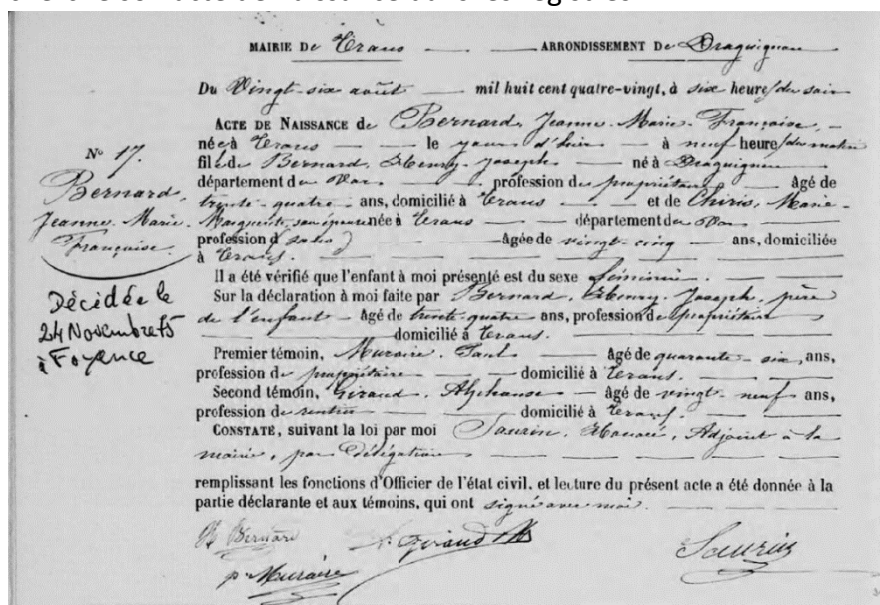 MAIRIE De Trans — — ARRONDISSEMENT De Draguignan
Du Vingt-six août — mil huit cent quatre-vingt, à six heures du soir
ACTE DE NAISSANCE de Bernard, Jeanne-Marie-Françoise, —
née à Trans — — le jour d'hier — à neuf heures du matin
fille de Bernard, Henry-Joseph — né à Draguignan
département du Var — profession de propriétaire — âgé de
trente-quatre — ans, domicilié à Trans — et de Chiris, Marie-
Marguerite, son épouse née à Trans — département du Var —
profession d — âgée de vingt-cinq — ans, domiciliée
à Trans. —
Il a été vérifié que l'enfant à moi présenté est du sexe féminin. —
Sur la déclaration à moi faite par Bernard, Henry-Joseph, père
de l'enfant — âgé de trente-quatre ans, profession de propriétaire
— domicilié à Trans.
Premier témoin, Muraire, Paul — âgé de quarante-six, ans,
profession de propriétaire — domicilié à Trans. —
Second témoin, Giraud, Alphonse — âgé de vingt-neuf ans,
profession de rentier — domicilié à Trans. —
CONSTATÉ, suivant la loi par moi Saurin, Honoré, Adjoint à la
mairie, par délégation —
remplissant les fonctions d'Officier de l'état civil, et lecture du présent acte a été donnée à la
partie déclarante et aux témoins, qui ont signé avec moi. —
N° 17.
Bernard,
Jeanne-Marie-
Françoise
Décidée le
24 Novembre 75
à Fayence
H Bernard
A. Giraud
Saurin
p. Muraire